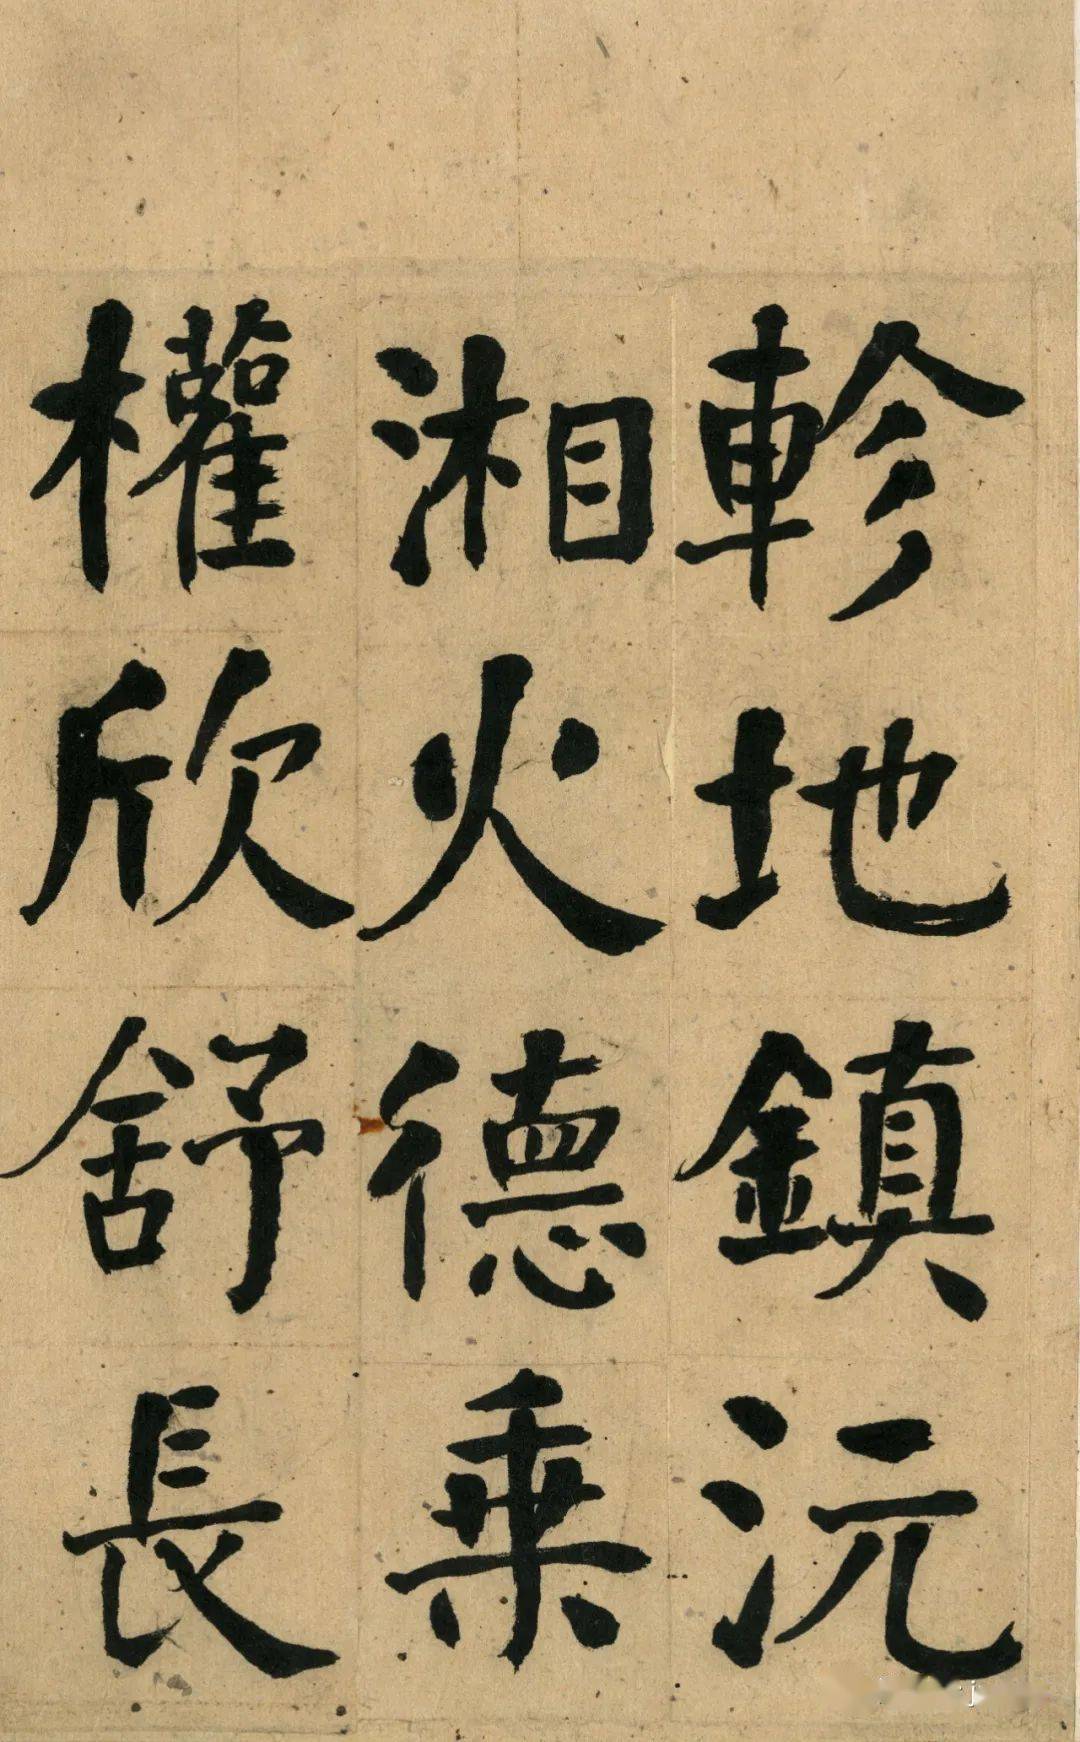 軫地鎮沅
湘火德乗
權欣舒長